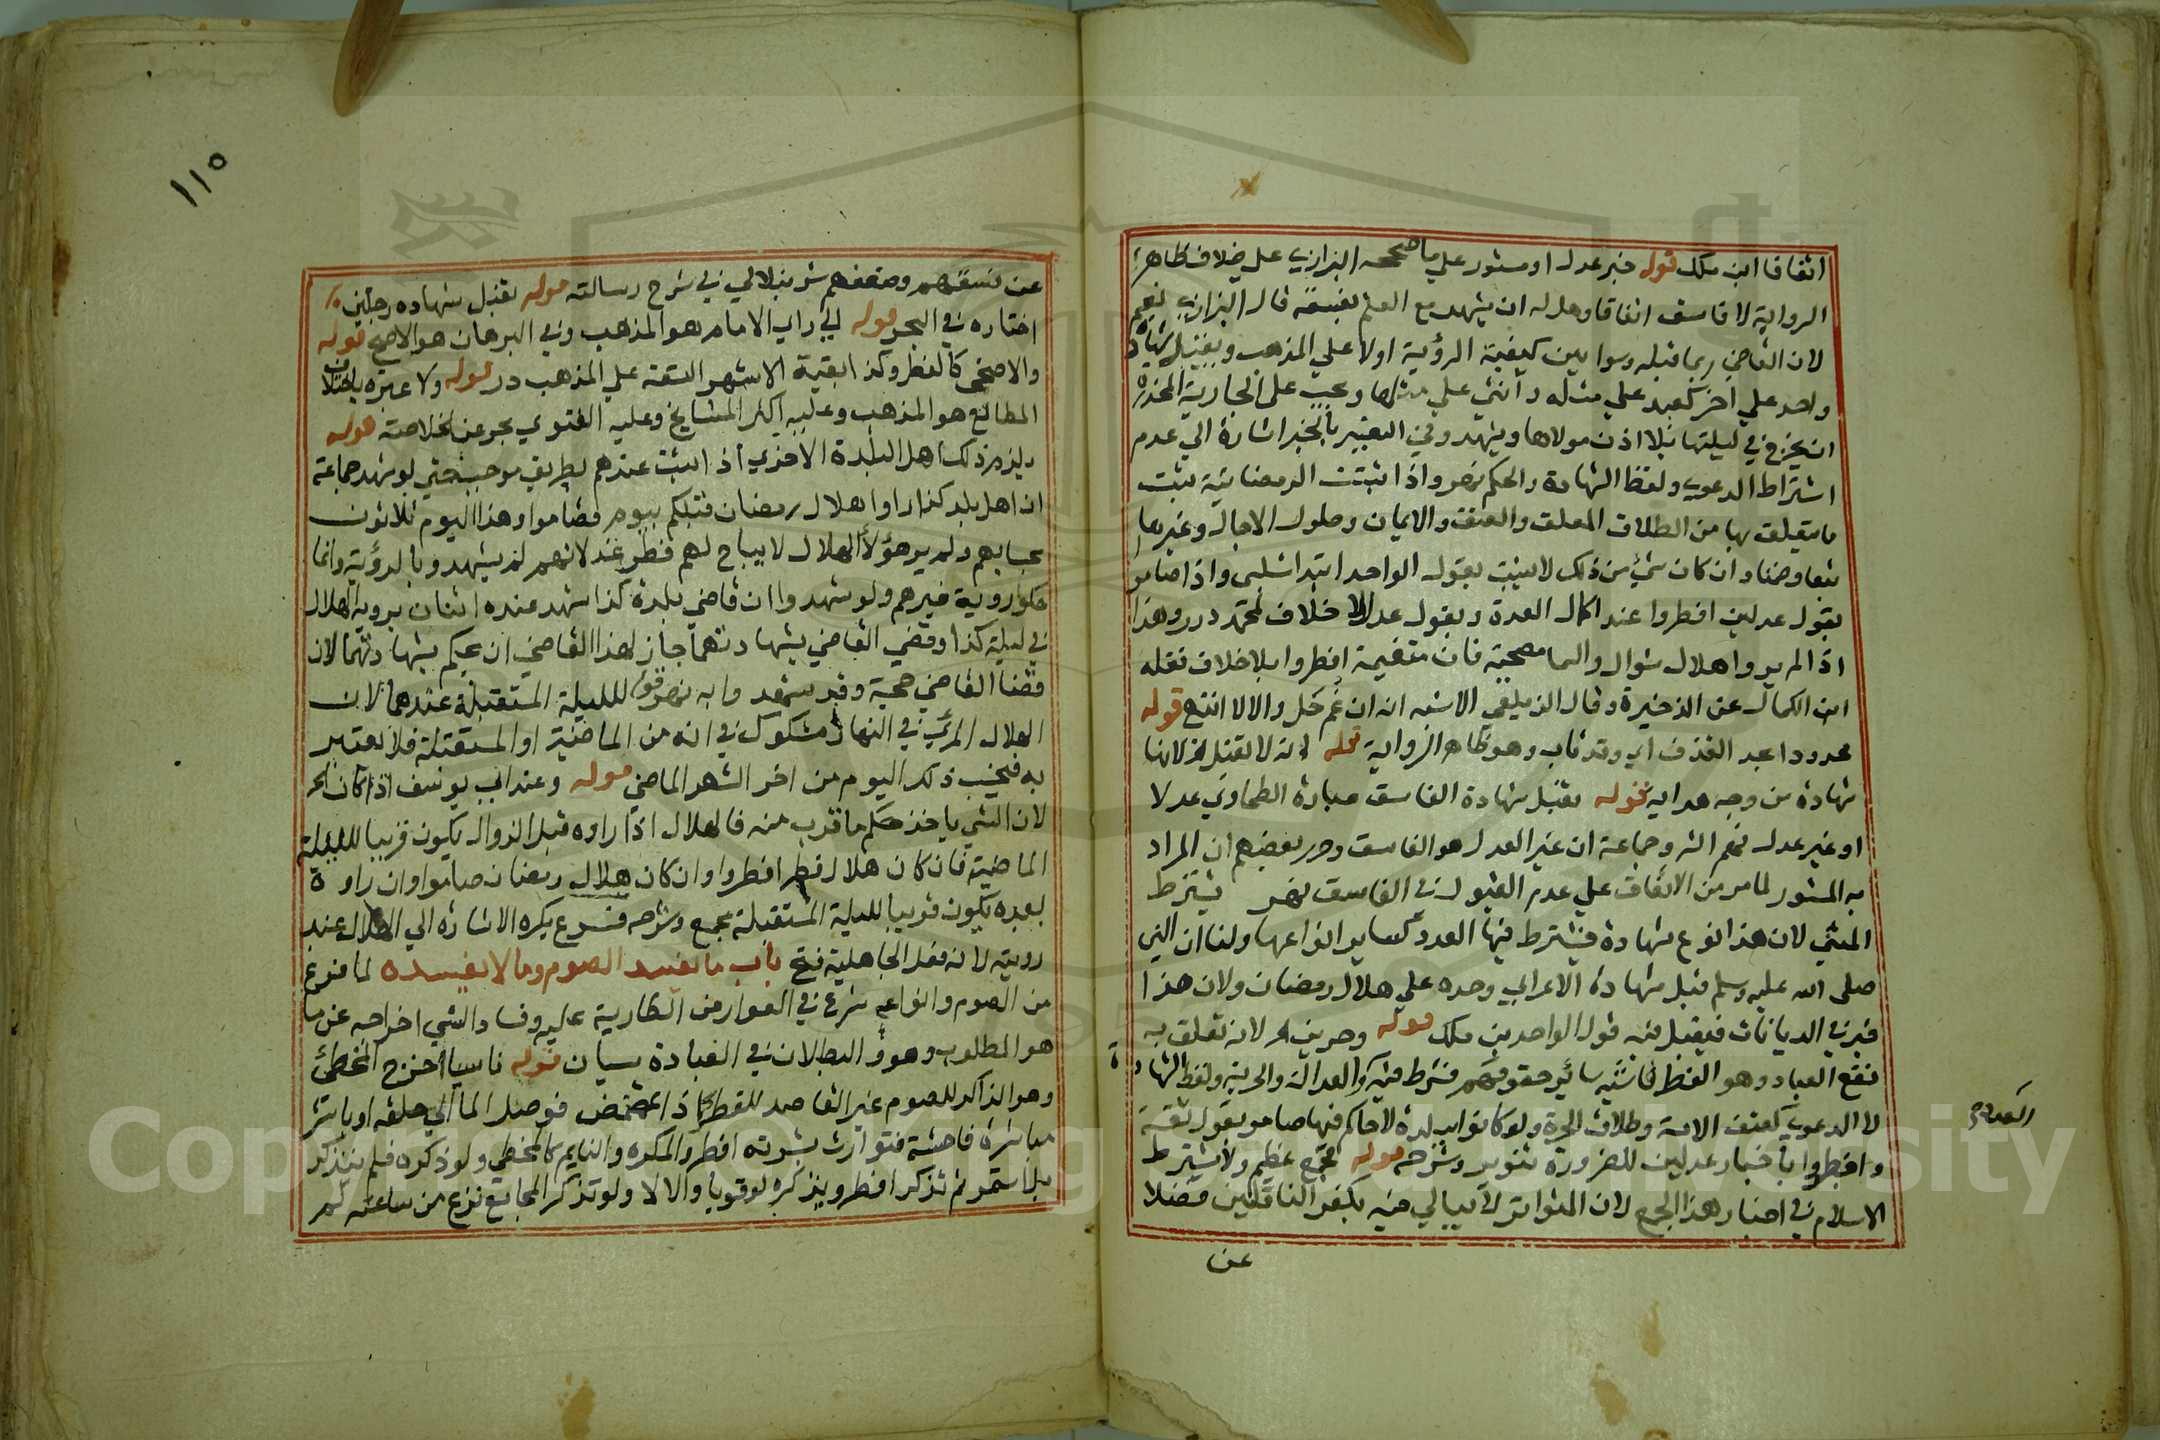 اتفاقا ابن ملك قوله خبر عدل او مستور علي ما صححه البزازي علي خلاف ظاهر
الرواية لا فاسق اتفاقا وهل له ان يشهد مع العلم بفسقه قال البزازي نعم
لان القاضي ربما قبله وسوا بين كيفية الرؤية اولا علي المذهب ويقبل شهادة
واحد علي اخر كعبد علي مثله وأنثي علي مثلها ويجب علي الجارية المخدرة
ان يخرج في ليلتها بلا اذن مولاها ويشهد وفي التعبير بالخبر اشارة الي عدم
اشتراط الدعوي ولفظ الشهادة والحكم نهر واذا ثبتت الرمضانية يثبت
ما يتعلق بها من الطلاق المعلق والعتق والايمان وحلول الاجال وغيرها
وان كان شئ من ذلك لا يثبت بقول الواحد ابتدا شلبى واذا صاموا
بقول عدلين افطروا عند اكمال العدة وبقول عدل لا خلاف لمحمد درر وهذا
اذا لم يروا هلال شوال والسما مصحية فان متغيمة افطروا بلا خلاف نقله
ابن الكمال عن الذخيرة وقال الزيلعي الاشبه انه ان غم حل والا لا انتهي قوله
محدودا عبد القذف اي وقد تاب وهو ظاهر الرواية لانه لا تقبل لانها
شهادة من وجه هدايه قوله يقبل شهادة الفاسق عبارة الطحاوي عدلا
او غير عدل فهم الشر وجماعة ان غير العدل هو الفاسق وحرر بعضهم ان المراد
به المستور لما مر من الاتفاق علي عدم القبول في الفاسق نهر يشترط
المثني لان هذا نوع شهادة فيشترط فيها العدد كساير انواعها ولنا ان النبي
صلى الله عليه وسلم قبل شهادة الاعرابي وحده علي هلال رمضان ولان هذا
خبر في الديانات فيقبل فيه قول الواحد بن ملك قوله وحرين الخ لانه تعلق به
نفع العباد وهو الفطر فاشبه سائر حقوقهم فشرط فيه والعدالة والحرية ولفظ الشهادة
لا الدعوي كعتق الامة وطلاق الحرة ولو كانوا ببلدة لا حاكم فيها صاموا بقول ثقة
وافطروا باخبار عدلين للضرورة تنوير وشرحه قوله جمع عظيم ولا يشترط
الاسلام في اخبار هذا الجمع لان المتواتر لا يبالي فيه بكفر الناقلين فضلا
عن
عن فسقهم وضعفهم شرنبلالي في شرح رسالته قوله يقبل شهادة رجلين
اختاره في البحر قوله الي راي الامام هو المذهب وفي البرهان هو الاصح قوله
والاضحى كالفطر وكذا بقية الاشهر التسعة علي المذهب درر قوله ولا عبرة باختلاف
المطالع هو المذهب وعليه اكثر المشايخ وعليه الفتوي بحر عن الخلاصة قوله
يلزم ذلك اهل البلدة الاخري اذا ثبت عندهم بطريق موجب حتي لو شهد جماعة
ان اهل بلد كذا راوا هلال رمضان قبلكم بيوم فصاموا وهذا اليوم ثلاثون
بحسابهم ولم ير هؤلا الهلال لا يباح لهم فطر غد لانهم لم يشهدوا بالرؤية وانما
حكوا روية غيرهم ولو شهدوا ان قاضي بلدة كذا شهد عنده اثنان بروية الهلال
في ليلة كذا وقضي القاضي بشهادتهما جاز لهذا القاضي ان يحكم بشهادتهما لان
قضا القاضي حجة وقد شهدوا به نهر قوله لليلة المستقبلة عندهما لان
الهلال المرئي في النهار مشكوك في انه من الماضية او المستقبلة فلا يعتبر
به فيحسب ذلك اليوم من اخر الشهر الماضي قوله وعند ابي يوسف اذا كان الخ
لان الشي ياخذ حكم ما قرب منه فالهلال اذا راوه قبل الزوال يكون قريبا لليلة
الماضية فان كان هلال فطر افطروا وان كان هلال رمضان صاموا وان راوه
بعده يكون قريبا لليلة المستقبلة مجمع وشرحه فرع يكره الاشارة الي الهلال عند
رويته لانه فعل الجاهلية فتح باب ما يفسد الصوم وما لا يفسده لما فرغ
من الصوم وانواعه شرع في العوارض الطارية عليه وفساد الشي اخراجه عن ما
هو المطلوب وهو والبطلان في العبادة سيان قوله ناسيا اخرج المخطئ
وهو الذاكر للصوم غير القاصد للفطر كاذا تمضمض فوصل الما الي حلقه او باشر
مباشرة فاحشة فتوارت بشرته افطر والمكره والنايم كالمخطي ولو ذكره فلم يتذكر
بل استمر ثم تذكر افطر ويذكره لو قويا والا لا ولو تذكر المجامع نزع من ساعته لم
١١٥
Copyright © King Saud University